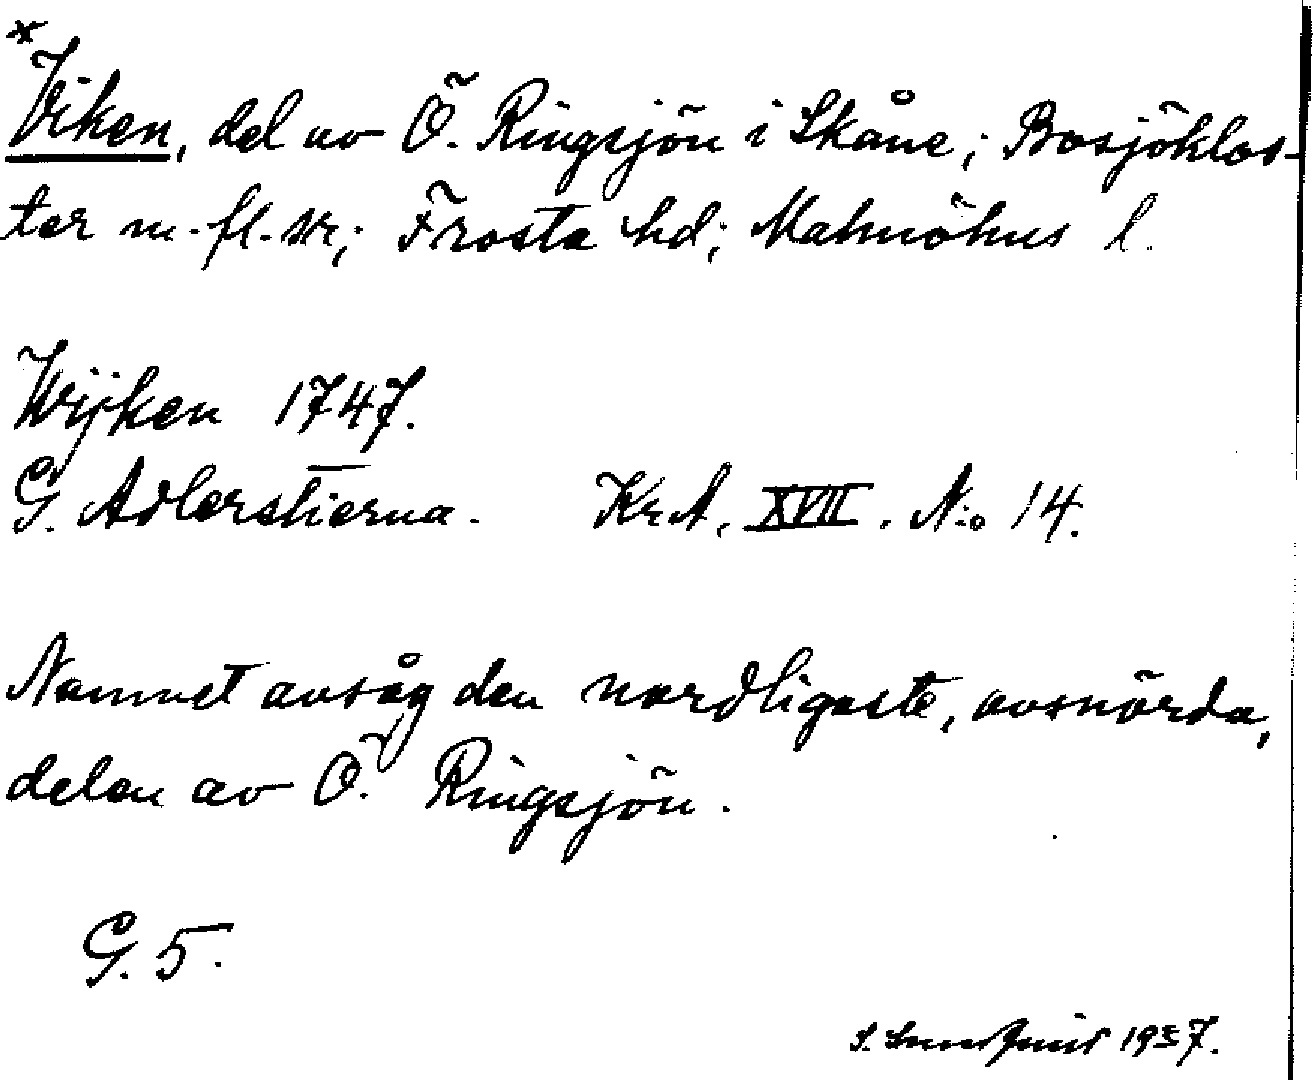 *Viken, del av Ö. Ringsjön i Skåne; Bosjöklos-
ter m. fl. snr; Frosta hd; Malmöhus l.
Wijken 1747.
G. Adlerstierna. KrA, XVII. N:o 14.
Namnet avsåg den nordligaste, avsnörda,
delen av Ö. Ringsjön.
G. 5.
S. 1937.